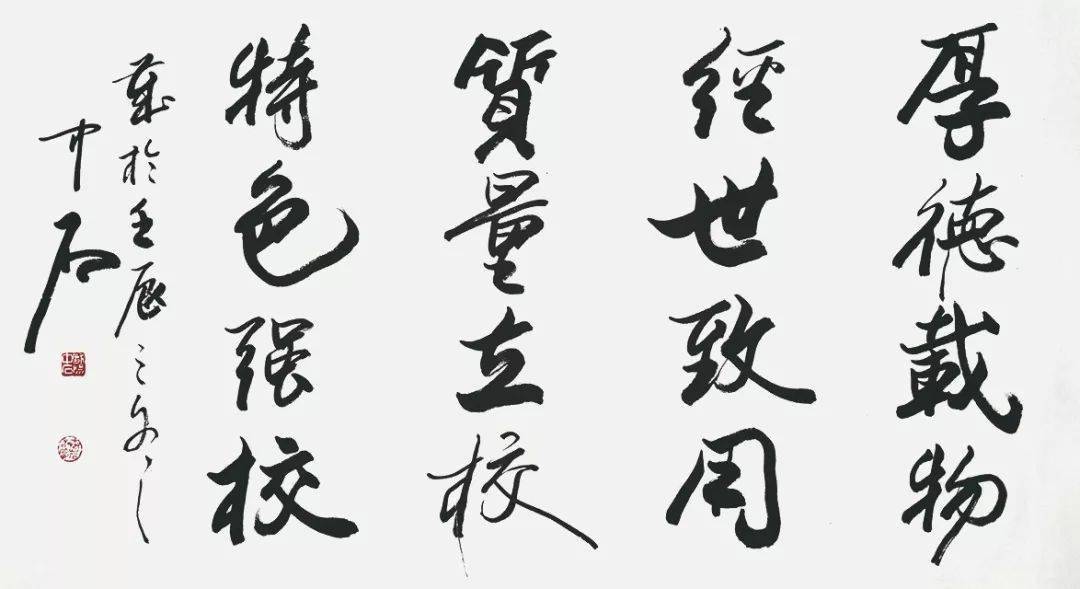 厚德載物
經世致用
質量立校
特色强校
歲於壬辰之
中石